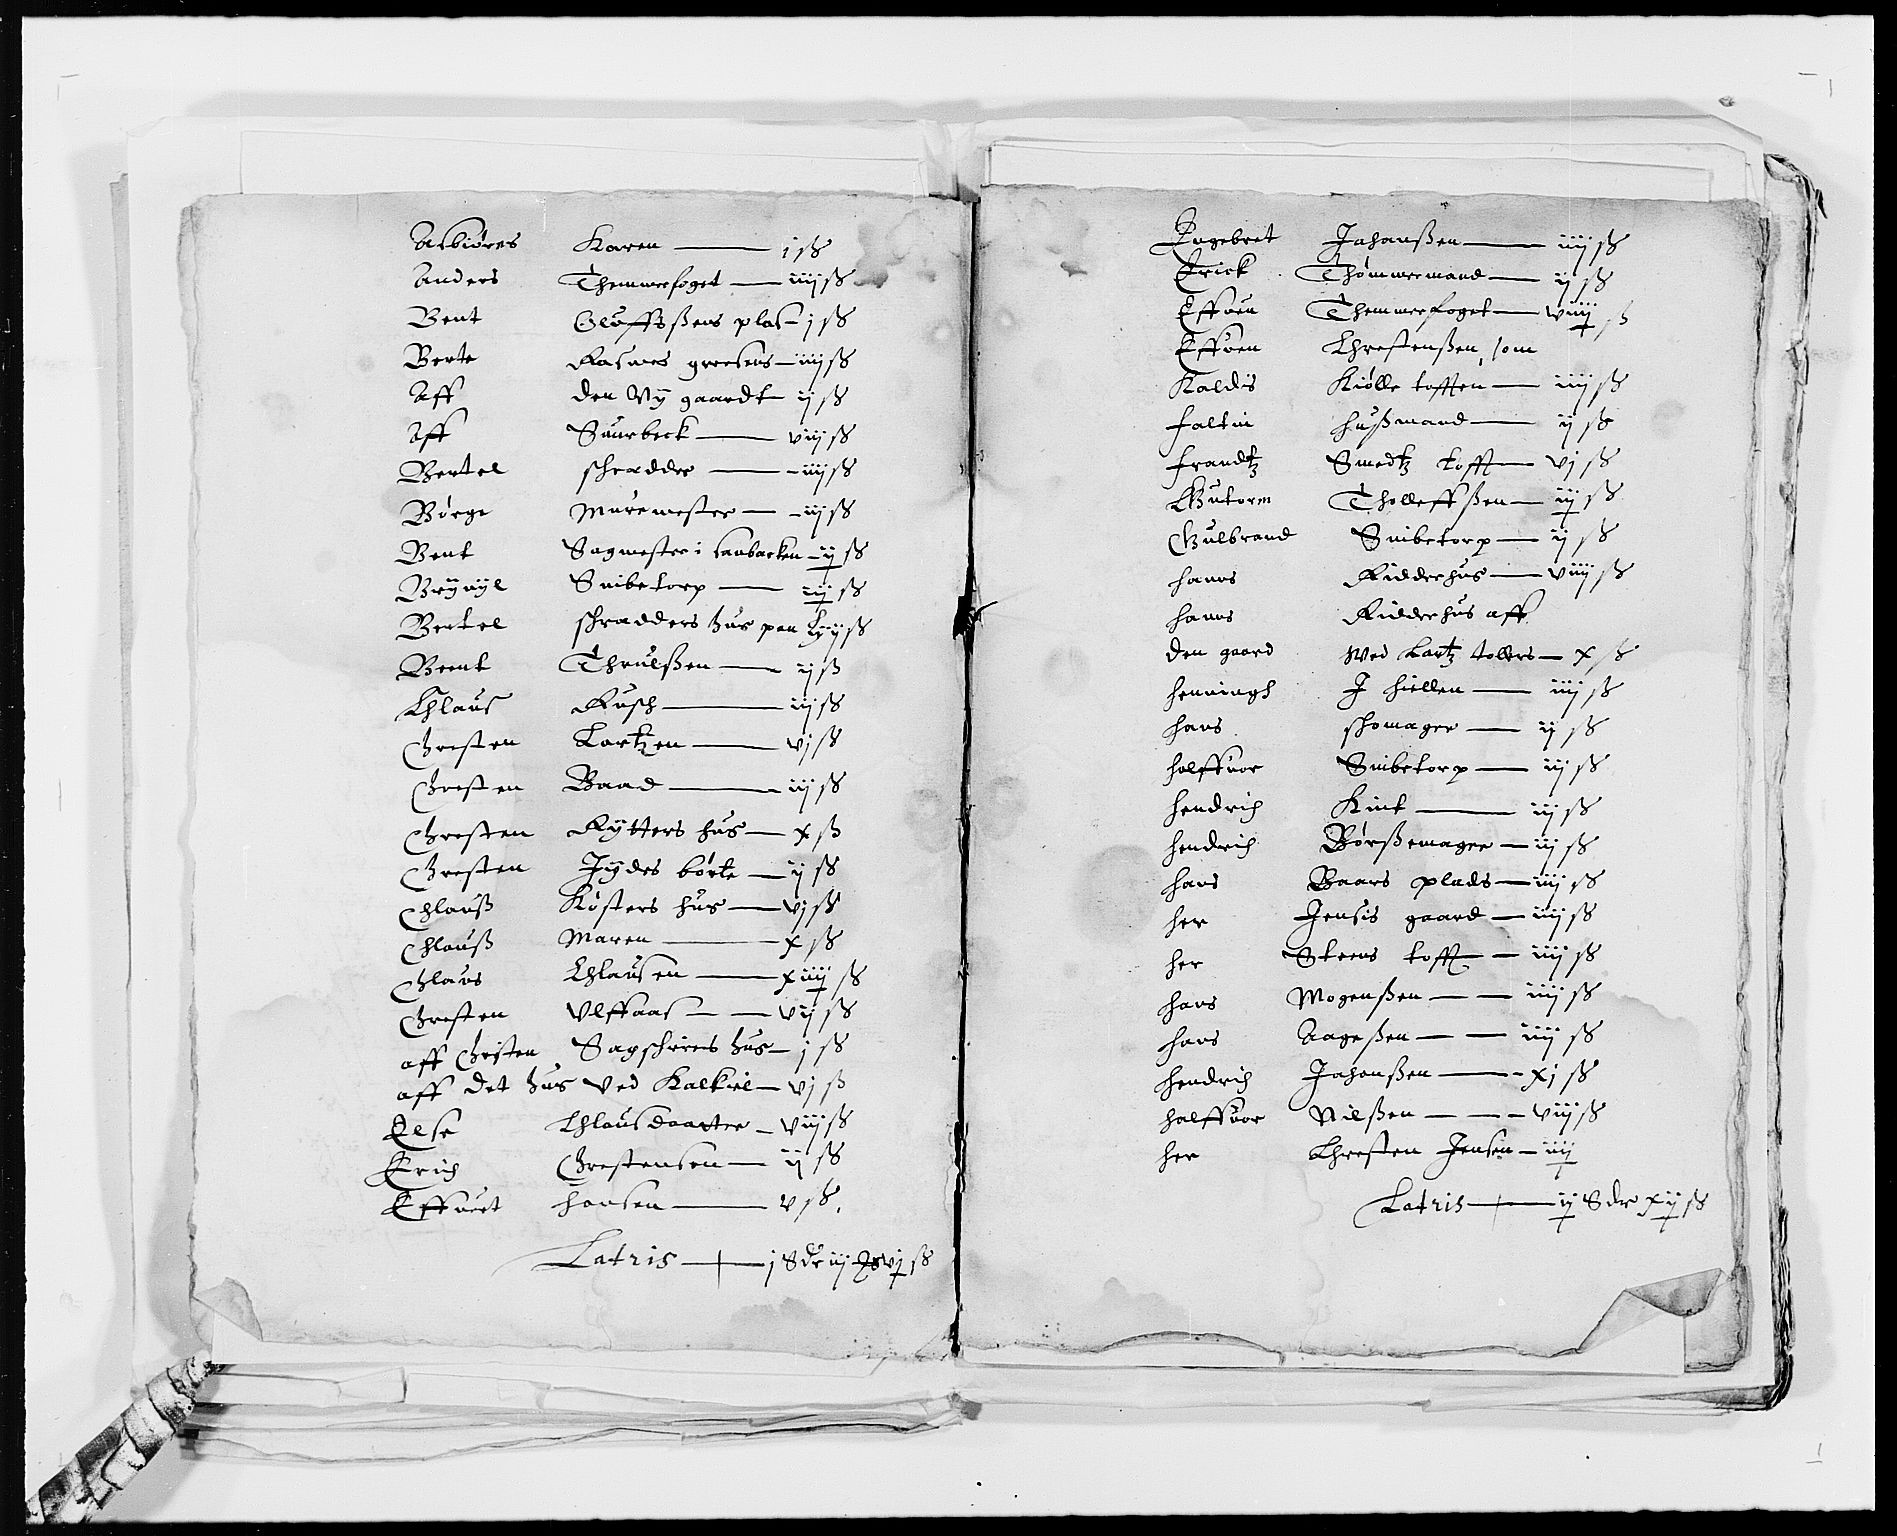 Asbiørns Karen — j sk
Anders Themmerfoget — iiij sk
Bent Oluffsßens plas — j sk
Berte Rasmus greesens — iiij sk
Aff den Ny gaardt — ij sk
Aff Suurbeck — viij sk
Bertel schredder — iiij sk
Børge Muremester — iij sk
Bent Sagmester i sanbacken — ij sk
Brÿnÿl Snibetorp — iij sk
Bertel schradders hus paa ij sk
Beent Thrulßen — ij ß
Chlaus Rusch — iij sk
Christen Lartzen — vj sk
Christen Baad — iij sk
Christen Rytters hus — x ß
Christen Jydes børte — ij sk
Chlauß Kosters hus — vj sk
Chlauß Maren — x sk
Chlaus Chlausen — xiiij sk
Christen Ulffaas — vij sk
aff Christen Sagschriers hus — j sk
aff det hus ved Kalkiel — vj ß
Else Chlausdaatter — viij sk
Erich Christensen — ij sk
Effuert hansen — v sk
Latris — j Sdr iij vj sk
Engebret Johanßen — iiij sk
Erick Thømmermand — ij sk
Effuen Themmerfoget — viiij ß
Effuen Chrestenßen, som
Kaldis Kiølle tofften — iiij sk
faltin hußmand — ij sk
frandtz Smedtz tofft — vj sk
Gutorm Tholleffßen — iij sk
Gulbrand Snibetorp — ij sk
hans Ridderhus — viiij sk
hans Ridderhus aff
den gaard Wed Lartz tollers — x sk
henningh J hiellen — iiij sk
hans schomager — ij sk
halffuor Snibetorp — iij sk
hendrich Kint — iij sk
hendrich Børßemager — iij sk
hans Baars plads — iiij sk
her Jensis gaard — iiij sk
her Steens tofft — iiij sk
hans Mogenßen — iiij sk
hans Aageßen — iiij sk
hendrich Johanßen — xj sk
halffuor Nilßen — viij sk
her Chresten Jensen — iiij
Latris — ij Sdr xij sk